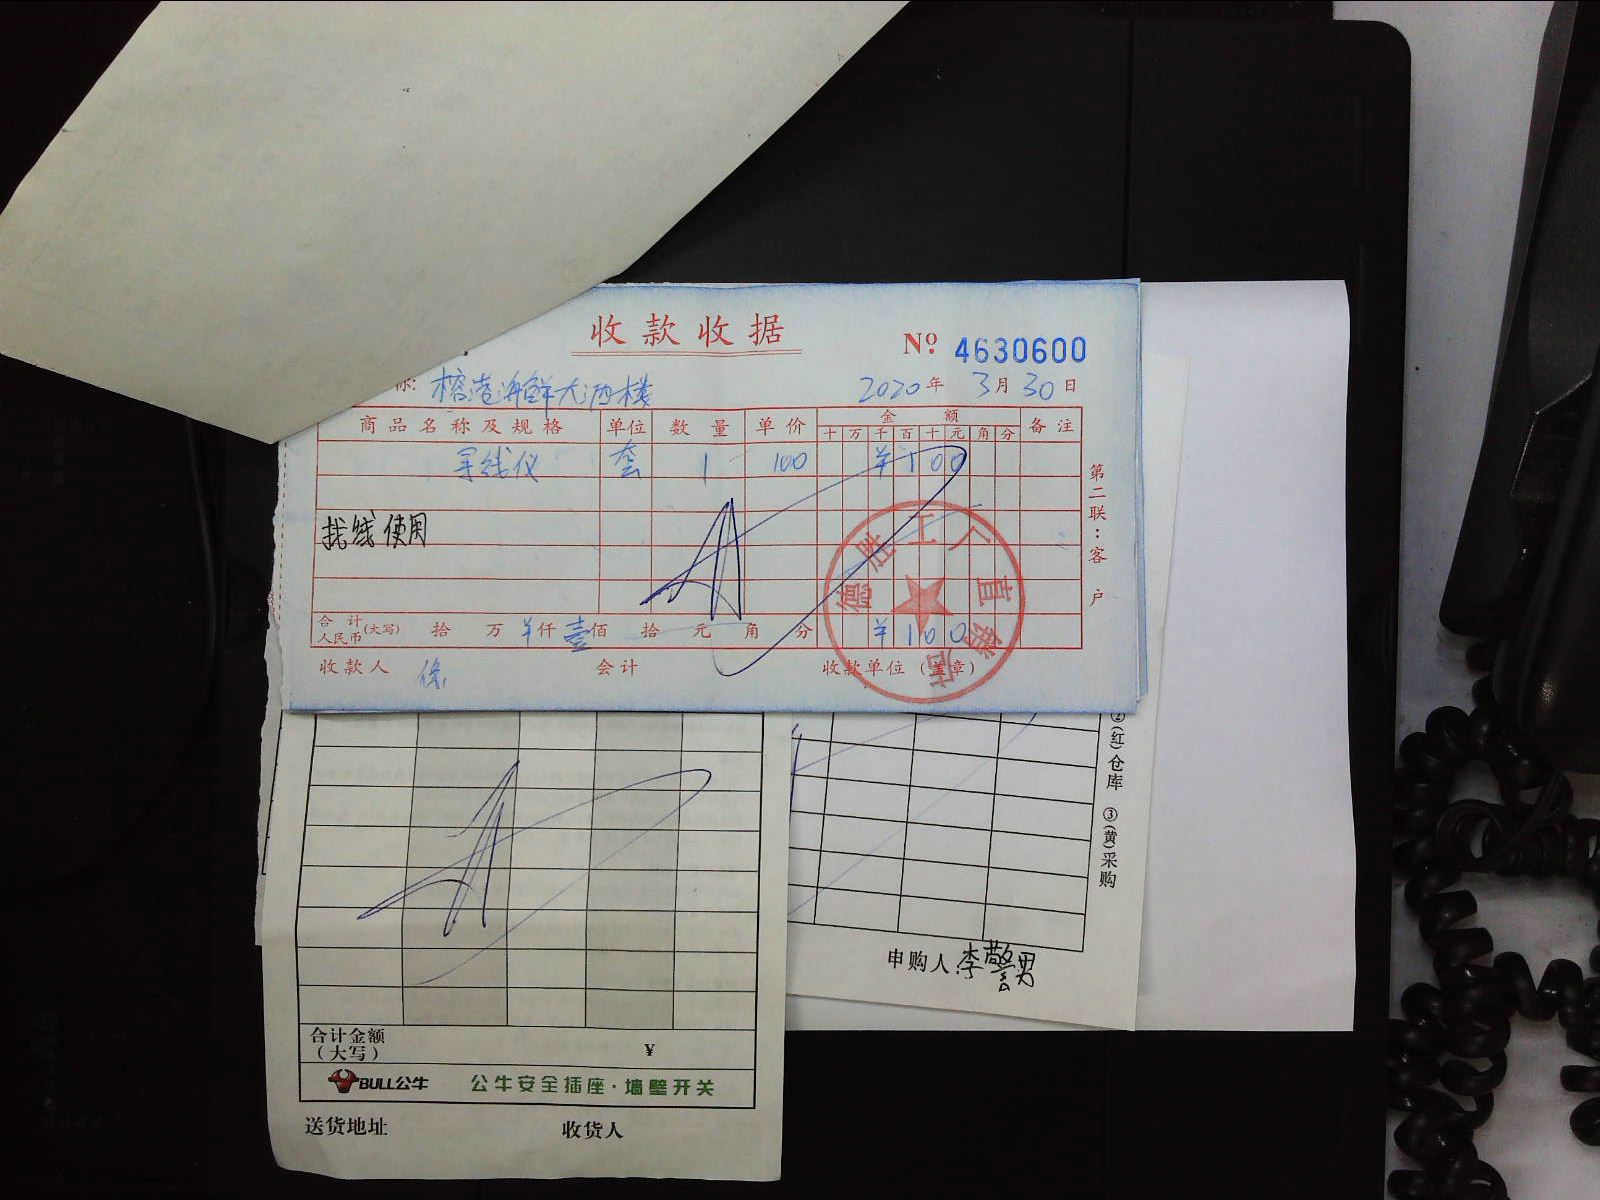 收款收据
№ 4630600
称: 榕港海鲜大酒楼 2020年3月30日
商品名称及规格 单位 数量 单价 金额 备注
十 万 千 百 十 元 角 分
寻线仪 套 1 100 ¥100
找线使用
合计人民币(大写) 拾 万 ¥仟 壹佰 拾 元 角 分 ¥100
收款人 徐 会计 收款单位(盖章)
第二联:客户
德胜工厂直销店
②(红)仓库 ③(黄)采购
申购人 李警男
合计金额
(大写) ¥
BULL公牛 公牛安全插座·墙壁开关
送货地址 收货人